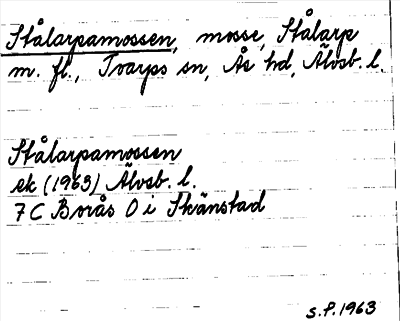 Stålarpamossen, mosse, Stålarp
m. fl., Tvarps sn, Ås hd, Älvsb. l.
Stålarpamossen
ek (1963) Älvsb. l.
7 C Borås O i Skänstad
S.P. 1963